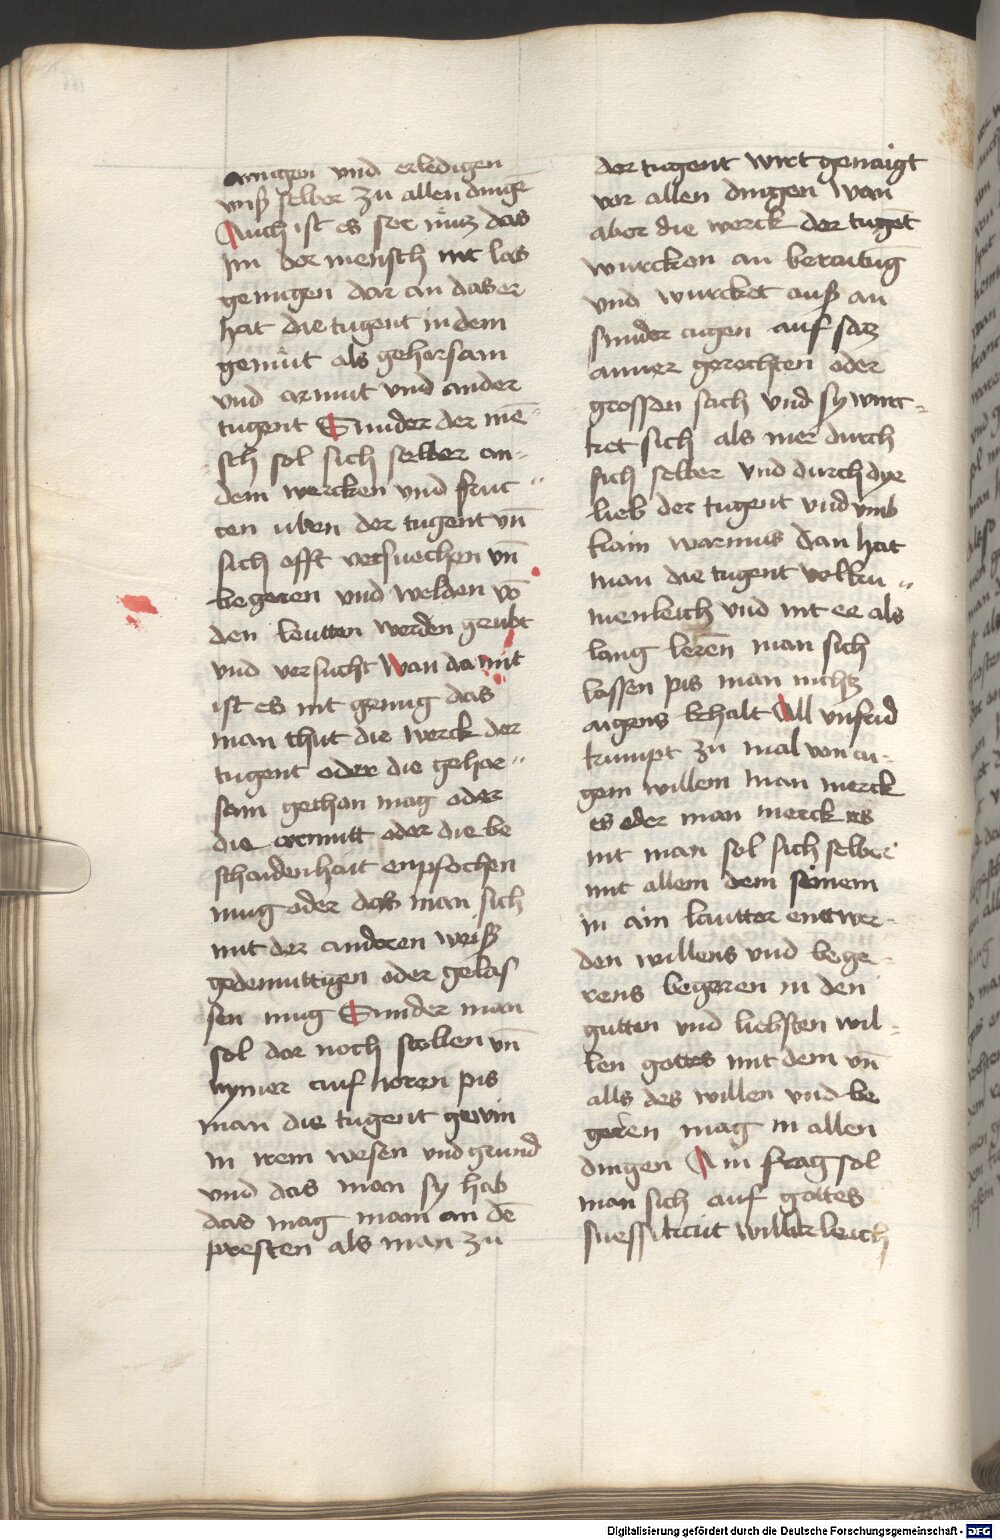 ainigen vnd erledigen
vnß selber zu allen dingē
Auch ist es ser nucz das
Im der mensch nit las
genugen dar an das er
hat die tugent in dem
gemüt als gehorsam
vnd armut vnd ander
tugent Sunder der mē
sch sol sich selber an
dem wercken vnd fruc
ten uben der tugent vn̄
sich offt versuechen vn̄
begeren vnd welden vō
den leutten werden geubt
vnd versucht Wan da mit
ist es nit genug das
man thut die werck der
tugent oder die gehor
sam gethan mag oder
die armutt oder die be
schaidenhait enpfochen
mug oder das man sich
mit der anderen weiß
gedemuttigen oder gelas
sen mug Sunder man
sol dar noch stellen vn̄
nymer auf horen pis
man die tugent gewin
in irem wesen vnd grund
vnd das man sy hab
das mag man an dē
presten als man zu
der tugent wirt genaigt
vor allen dingen Wan
aber die werck der tugēt
wurcken an beraitūg
vnd wurcket auß an
sunder aigen auf sacz
ainer gerechten oder
grossen sach vnd sy wirc
ket sich als mer durch
sich selber vnd durch dye
lieb der tugent vnd vmb
kain warmus dan hat
man die tugent volku
menleich vnd nit ee als
lang leren̄ man sich
lassen pis man nichtz
aigens behalt All vnfrid
kumpt zu mal von ai
gem willem man merck
es oder man merck es
nit man sol sich selber
mit allem dem seinem
in ain lautter entwer
den willens vnd bege
rens begeren in den
gutten vnd liebsten wil
len gottes mit dem vn̄
alls des willen vnd be
geren mag in allen
dingen Ain frag sol
man sich auf gottes
suessikait willikleich
Digitalisierung gefördert durch die Deutsche Forschungsgemeinschaft - DFG